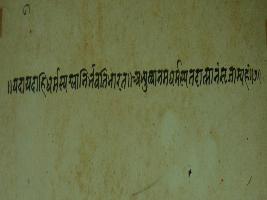 ॥यदायदाहिधर्मस्यग्लानिर्भवतिभारत॥अभ्युत्थानमधर्मस्यतदात्मानंसृजाम्यहं॥७॥